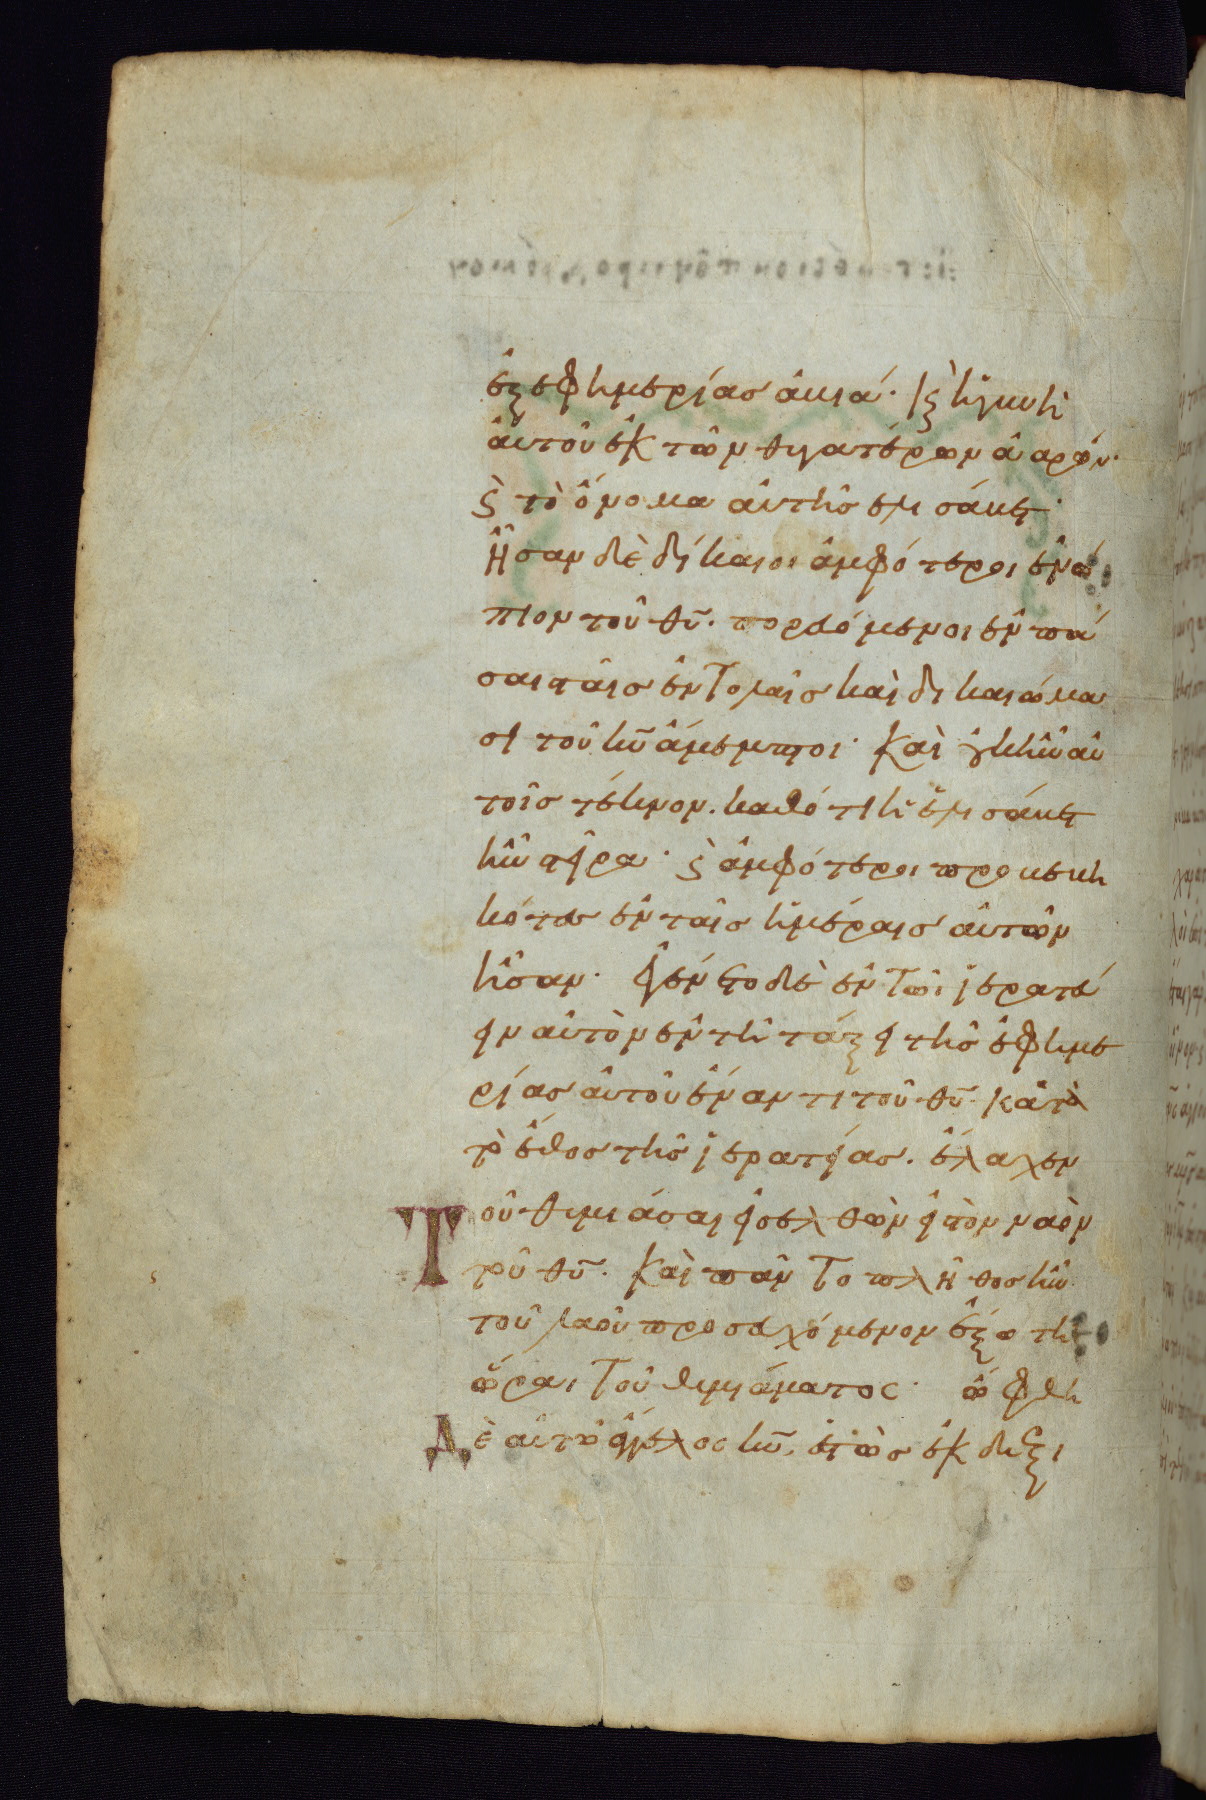 ἐξ ἐφημερίας ἀβιά· κ(αὶ) ἡ γυνὴ
ἀυτοῦ ἐκ τῶν θυγατέρων ἀαρών·
κ(αὶ) τὸ ὄνομα ἀυτῆσ ἐλισάβετ·
Ἦσαν δὲ δίκαιοι ἀμφότεροι ἐνώ
πιον τοῦ θυ̅· πορευόμενοι ἐν πά
σαις ταῖσ ἐντολαῖσ καὶ δικαιώμα
σι τοῦ κυ̅ ἄμεμπτοι· Καὶ οὐκ ἦν ἀυ
τοῖσ τέκνον. καθότι ἡ ἐλισάβετ
ἦν στεῖρα· κ(αὶ) ἀμφότεροι προβεβη
κότες ἐν ταῖσ ἡμέραισ ἀυτῶν
ἦσαν· ἐγένετο δὲ ἐν τῶι ἱερατεύ
ειν ἀυτὸν ἐν τῆ τάξει τῆσ ἐφημε
ρίασ ἀυτοῦ ἔναντι τοῦ θυ̅· κατὰ
τὸ ἔθοσ τῆσ ἱερατείασ. ἔλαχεν
Τοῦ θυμιάσαι εἰσελθὼν εἰς τὸν ναὸν
τοῦ θυ̅· Καὶ πᾶν το πλῆθοσ ἦν
τοῦ λαοῦ προσευχόμενον ἔξω τῆ
ὥραι τοῦ θυμιάματος· ὤφθη
Δὲ ἀυτῶ ἄγγελος κυ̅, ἑστὼσ ἐκ δεξι